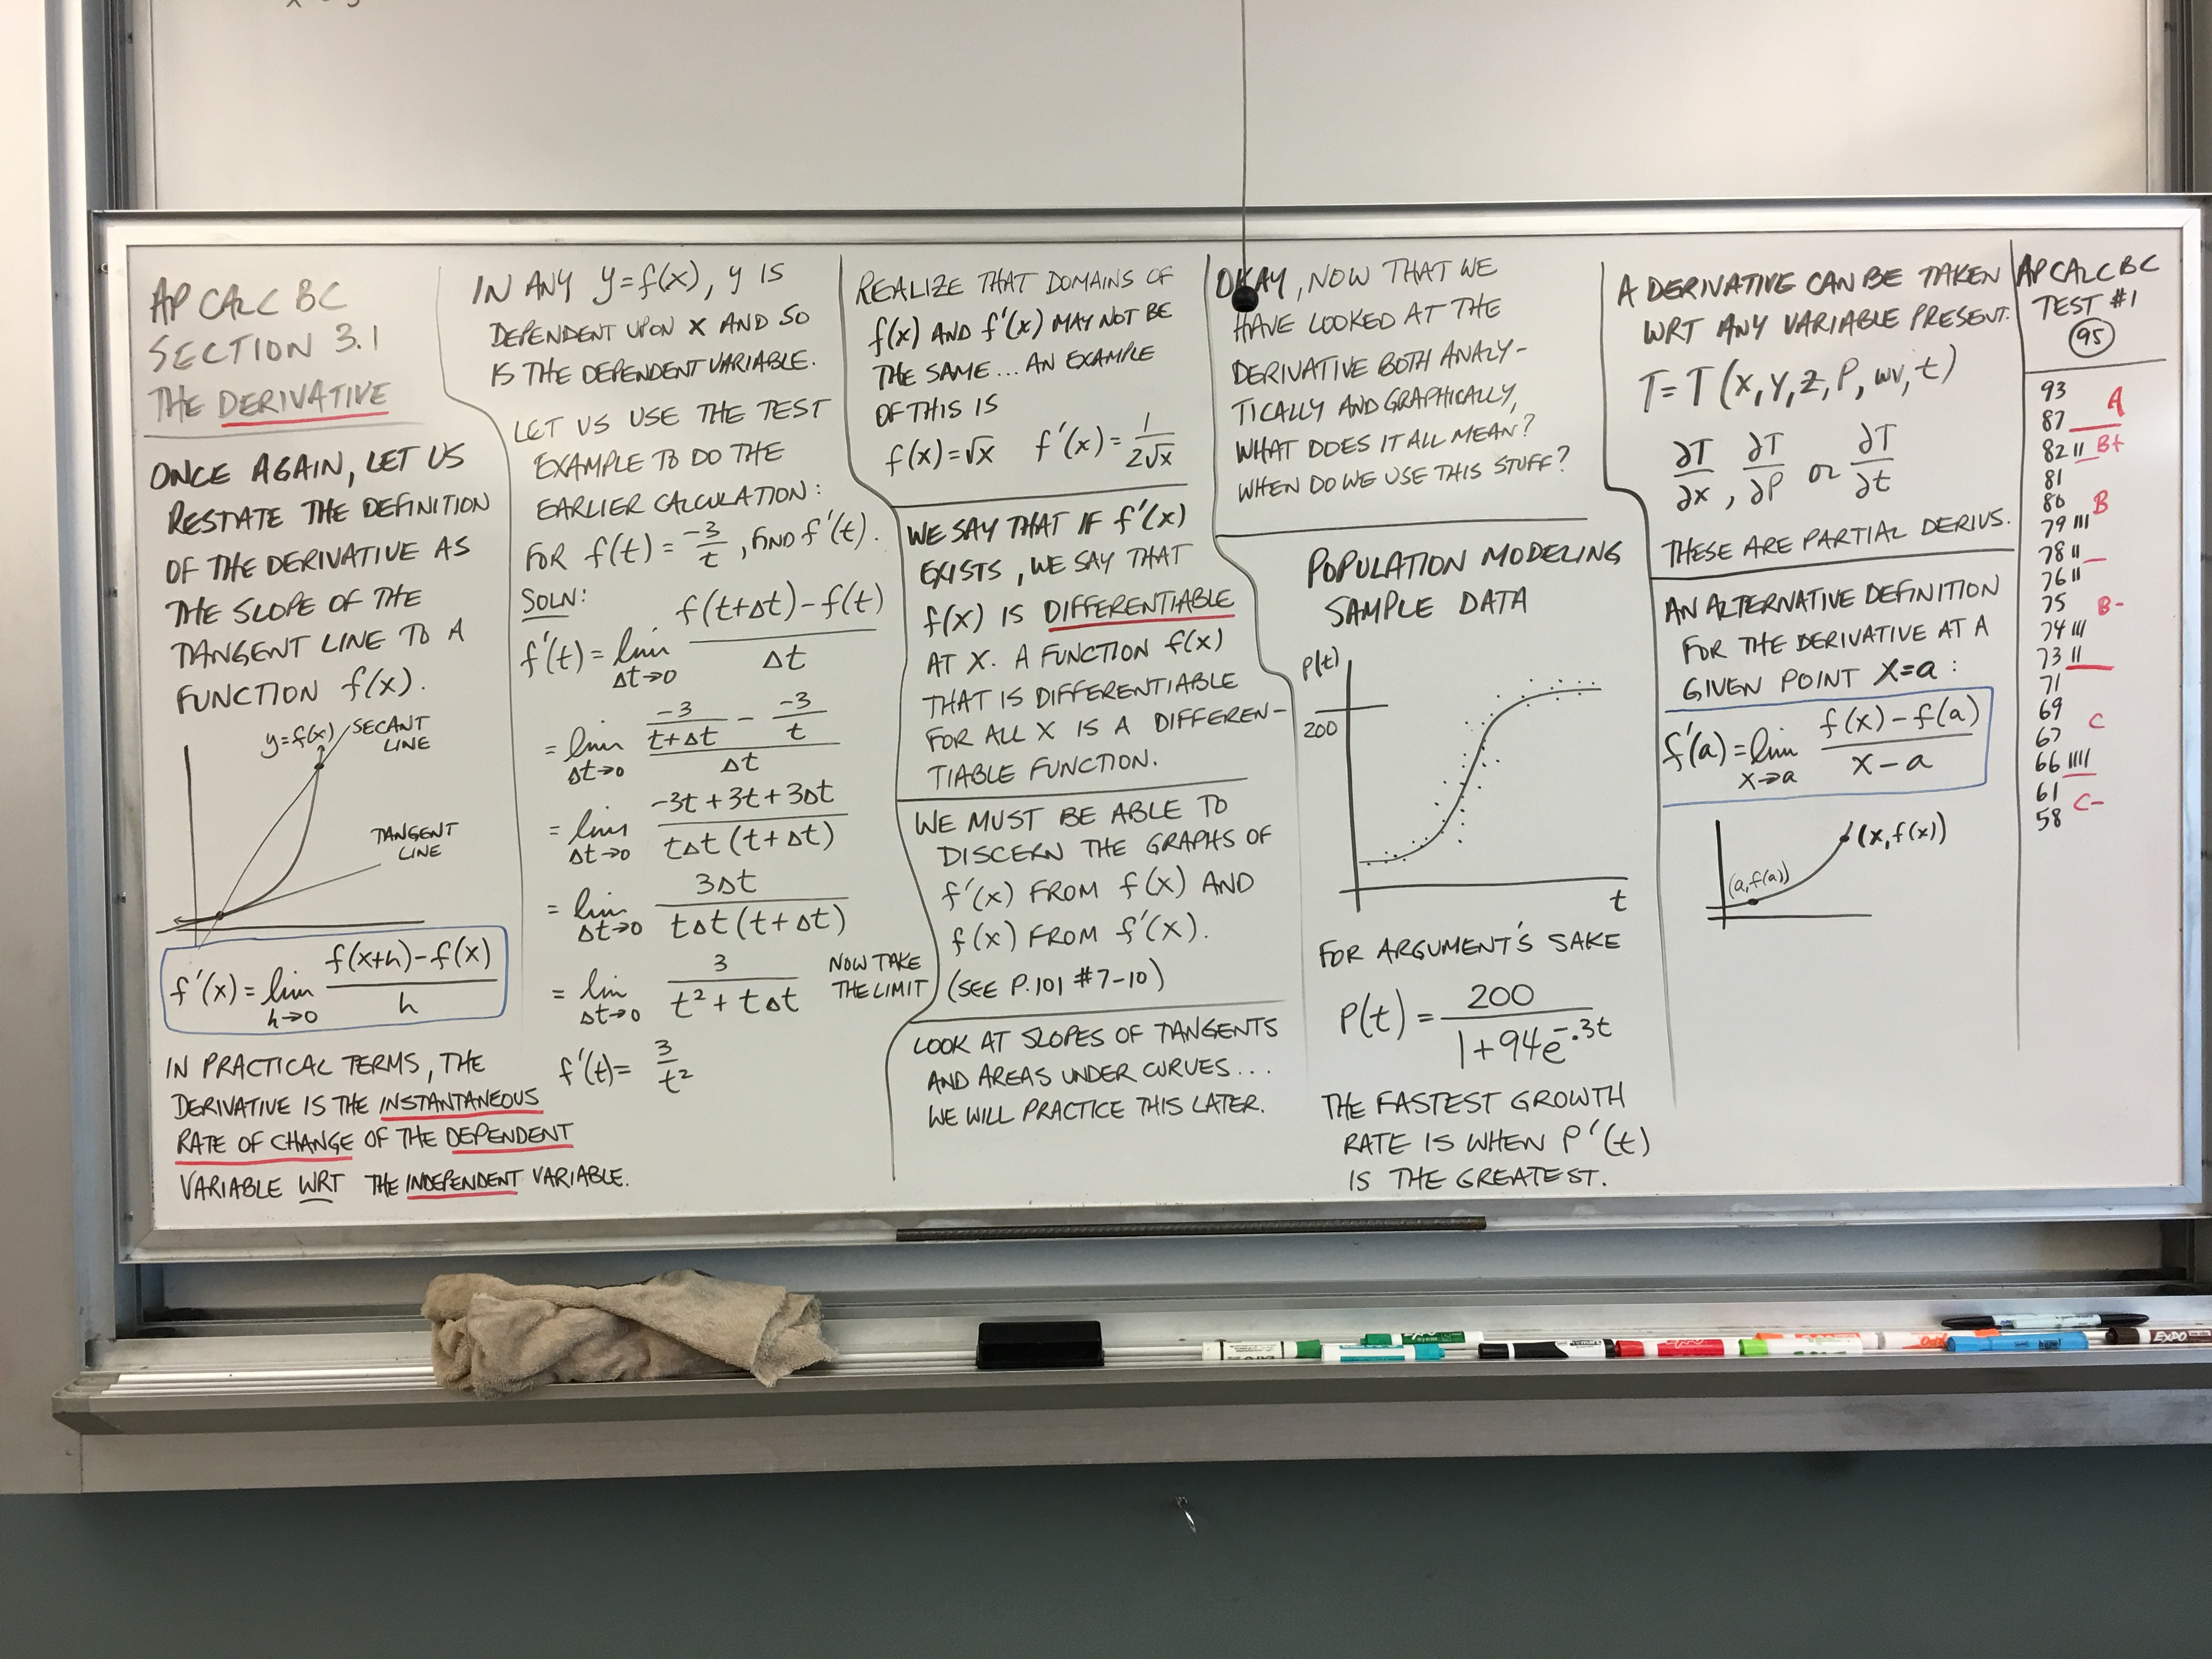 AP CALC BC
SECTION 3.1
THE DERIVATIVE
ONCE AGAIN, LET US
RESTATE THE DEFINITION
OF THE DERIVATIVE AS
THE SLOPE OF THE
TANGENT LINE TO A
FUNCTION f(x).
y=f(x)
SECANT
LINE
TANGENT
LINE
f'(x) = lim h→0 (f(x+h)-f(x))/h
IN PRACTICAL TERMS, THE
DERIVATIVE IS THE INSTANTANEOUS
RATE OF CHANGE OF THE DEPENDENT
VARIABLE WRT THE INDEPENDENT VARIABLE.
IN ANY y=f(x), y IS
DEPENDENT UPON X AND SO
IS THE DEPENDENT VARIABLE.
LET US USE THE TEST
EXAMPLE TO DO THE
EARLIER CALCULATION:
FOR f(t) = -3/t, FIND f'(t).
SOLN:
f'(t) = lim Δt→0 (f(t+Δt)-f(t))/Δt
= lim Δt→0 (-3/(t+Δt) - -3/t)/Δt
= lim Δt→0 (-3t+3t+3Δt)/(tΔt(t+Δt))
= lim Δt→0 3Δt/(tΔt(t+Δt))
= lim Δt→0 3/(t²+tΔt) NOW TAKE
THE LIMIT
f'(t) = 3/t²
REALIZE THAT DOMAINS OF
f(x) AND f'(x) MAY NOT BE
THE SAME... AN EXAMPLE
OF THIS IS
f(x)=√x f'(x)= 1/(2√x)
WE SAY THAT IF f'(x)
EXISTS, WE SAY THAT
f(x) IS DIFFERENTIABLE
AT X. A FUNCTION f(x)
THAT IS DIFFERENTIABLE
FOR ALL X IS A DIFFEREN-
TIABLE FUNCTION.
WE MUST BE ABLE TO
DISCERN THE GRAPHS OF
f'(x) FROM f(x) AND
f(x) FROM f'(x).
(SEE P.101 #7-10)
LOOK AT SLOPES OF TANGENTS
AND AREAS UNDER CURVES...
WE WILL PRACTICE THIS LATER.
OKAY, NOW THAT WE
HAVE LOOKED AT THE
DERIVATIVE BOTH ANALY-
TICALLY AND GRAPHICALLY,
WHAT DOES IT ALL MEAN?
WHEN DO WE USE THIS STUFF?
POPULATION MODELING
SAMPLE DATA
P(t)
200
t
FOR ARGUMENT'S SAKE
P(t) = 200/(1+94e^-.3t)
THE FASTEST GROWTH
RATE IS WHEN P'(t)
IS THE GREATEST.
A DERIVATIVE CAN BE TAKEN
WRT ANY VARIABLE PRESENT.
T=T(x,y,z,P,wv,t)
∂T/∂x, ∂T/∂P OR ∂T/∂t
THESE ARE PARTIAL DERIVS.
AN ALTERNATIVE DEFINITION
FOR THE DERIVATIVE AT A
GIVEN POINT X=a:
f'(a) = lim x→a (f(x)-f(a))/(x-a)
(x,f(x))
(a,f(a))
AP CALC BC
TEST #1
95
93
A
87
82 II B+
81
80 B
79 III
78 II
76 II
75 B-
74 III
73 II
71
69
C
67
66 IIII
61 C-
58
EXPO